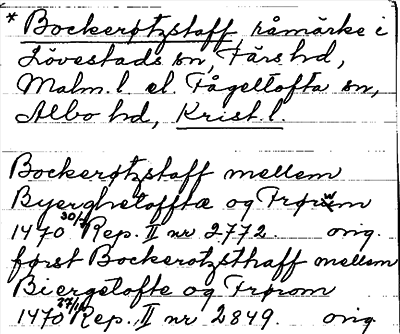 * Bockerøtzstaff råmärke i
Lövestads sn, Färs hd,
Malm. l. el. Fågeltofta sn,
Albo hd, Krist. l.
Bockerøtzstaff mellem
Byerghetofftæ og Frørwm
1470 Rep. II nr 2772. orig.
først Bockerotzsthaff mellem
Biergetofte og Frørom
1470 Rep. II nr 2849. orig.